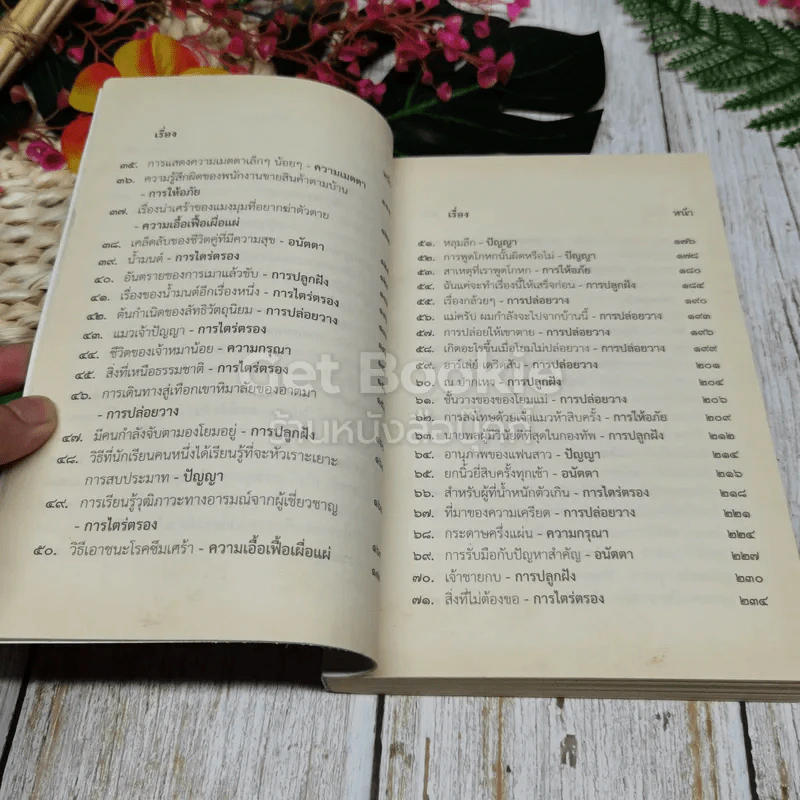 เรื่อง
๓๕. การแสดงความเมตตาเล็กๆ น้อยๆ - ความเมตตา
๓๖. ความรู้สึกผิดของพนักงานขายสินค้าตามบ้าน
- การให้อภัย
๓๗. เรื่องน่าเศร้าของแมงมุมที่อยากฆ่าตัวตาย
- ความเอื้อเฟื้อเผื่อแผ่
๓๘. เคล็ดลับของชีวิตคู่ที่มีความสุข - อนัตตา
๓๙. น้ำมนต์ - การไตร่ตรอง
๔๐. อันตรายของการเมาแล้วขับ - การปลูกฝัง
๔๑. เรื่องของน้ำมนต์อีกเรื่องหนึ่ง - การไตร่ตรอง
๔๒. ต้นกำเนิดของลัทธิวัตถุนิยม - การปล่อยวาง
๔๓. แมวเจ้าปัญญา - การไตร่ตรอง
๔๔. ชีวิตของเจ้าหมาน้อย - ความกรุณา
๔๕. สิ่งที่เหนือธรรมชาติ - การไตร่ตรอง
๔๖. การเดินทางสู่เทือกเขาหิมาลัยของอาตมา
- การปล่อยวาง
๔๗. มีคนกำลังจับตามองโยมอยู่ - การปลูกฝัง
๔๘. วิธีที่นักเรียนคนหนึ่งได้เรียนรู้ที่จะหัวเราะเยาะ
การสบประมาท - ปัญญา
๔๙. การเรียนรู้วุฒิภาวะทางอารมณ์จากผู้เชี่ยวชาญ
- การไตร่ตรอง
๕๐. วิธีเอาชนะโรคซึมเศร้า - ความเอื้อเฟื้อเผื่อแผ่
เรื่อง หน้า
๕๑. หลุมลึก - ปัญญา ๑๗๖
๕๒. การพูดโกหกนั้นผิดหรือไม่ - ปัญญา ๑๗๘
๕๓. สาเหตุที่เราพูดโกหก - การให้อภัย ๑๘๐
๕๔. ฉันแค่จะทำเรื่องนี้ให้เสร็จก่อน - การปลูกฝัง ๑๘๔
๕๕. เรื่องกล้วยๆ - การปล่อยวาง ๑๙๐
๕๖. แม่ครับ ผมกำลังจะไปจากบ้านนี้ - การปล่อยวาง ๑๙๓
๕๗. การปล่อยให้เขาตาย - การปล่อยวาง ๑๙๖
๕๘. เกิดอะไรขึ้นเมื่อโยมไม่ปล่อยวาง - การปล่อยวาง ๑๙๙
๕๙. ฮาร์เลย์ เดวิดสัน - การปล่อยวาง ๒๐๑
๖๐. ณ ปากเหว - การปลูกฝัง ๒๐๔
๖๑. ชั้นวางของของโยมแม่ - การปล่อยวาง ๒๐๖
๖๒. การลงโทษด้วยเจ้าแมวห้าสิบครั้ง - การให้อภัย ๒๐๙
๖๓. นายพลผู้มีวินัยดีที่สุดในกองทัพ - การปลูกฝัง ๒๑๒
๖๔. อานุภาพของแฟนสาว - ปัญญา ๒๑๔
๖๕. ยกนิ้วยี่สิบครั้งทุกเช้า - อนัตตา ๒๑๖
๖๖. สำหรับผู้ที่น้ำหนักตัวเกิน - การไตร่ตรอง ๒๑๘
๖๗. ที่มาของความเครียด - การปล่อยวาง ๒๒๑
๖๘. กระดาษครึ่งแผ่น - ความกรุณา ๒๒๔
๖๙. การรับมือกับปัญหาสำคัญ - อนัตตา ๒๒๗
๗๐. เจ้าชายกบ - การปลูกฝัง ๒๓๐
๗๑. สิ่งที่ไม่ต้องขอ - การไตร่ตรอง ๒๓๔